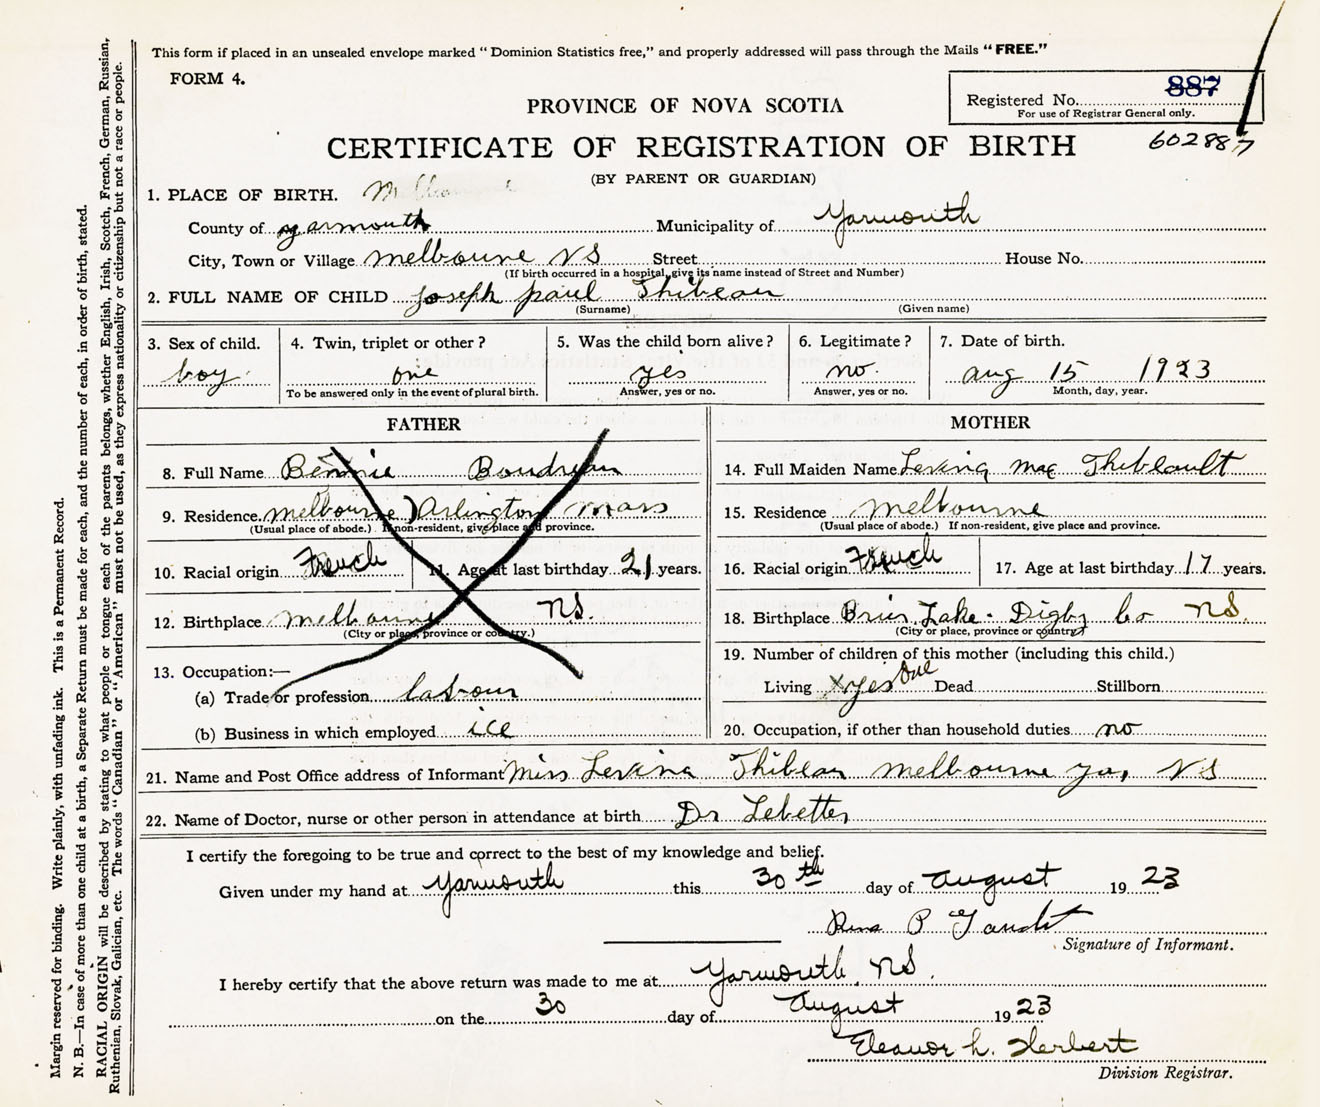 This form if placed in an unsealed envelope marked "Dominion Statistics free," and properly addressed will pass through the Mails "FREE."
FORM 4.
887
Registered No.
For use of Registrar General only.
602887
PROVINCE OF NOVA SCOTIA
CERTIFICATE OF REGISTRATION OF BIRTH
(BY PARENT OR GUARDIAN)
1. PLACE OF BIRTH.
County of yarmouth Municipality of Yarmouth
City, Town or Village melbourne NS Street House No.
(If birth occurred in a hospital, give its name instead of Street and Number)
2. FULL NAME OF CHILD Joseph paul Thibeau
(Surname) (Given name)
3. Sex of child. 4. Twin, triplet or other? 5. Was the child born alive? 6. Legitimate? 7. Date of birth.
boy one yes no. aug 15 1923
To be answered only in the event of plural birth. Answer, yes or no. Answer, yes or no. Month, day, year.
FATHER MOTHER
8. Full Name Bennie Boudreau 14. Full Maiden Name mae Thibeault
9. Residence melbourne) Arlington mass 15. Residence melbourne
(Usual place of abode.) If non-resident, give place and province. (Usual place of abode.) If non-resident, give place and province.
10. Racial origin French 11. Age at last birthday 21 years. 16. Racial origin French 17. Age at last birthday 17 years.
12. Birthplace melbourne NS. 18. Birthplace Brier Lake - Digby Co NS.
(City or place, province or country.) (City or place, province or country)
13. Occupation:— 19. Number of children of this mother (including this child.)
(a) Trade or profession labour Living yes One Dead Stillborn
(b) Business in which employed ice 20. Occupation, if other than household duties no
21. Name and Post Office address of Informant Miss Thibeau melbourne ya, NS
22. Name of Doctor, nurse or other person in attendance at birth Dr Lebetter
I certify the foregoing to be true and correct to the best of my knowledge and belief.
Given under my hand at Yarmouth this 30th day of August 1923
P Gaudet
Signature of Informant.
I hereby certify that the above return was made to me at Yarmouth, NS.
on the 30 day of August 1923
Eleanor L. Herbert
Division Registrar.
Margin reserved for binding. Write plainly, with unfading ink. This is a Permanent Record.
N. B.—In case of more than one child at a birth, a Separate Return must be made for each, and the number of each, in order of birth, stated.
RACIAL ORIGIN will be described by stating to what people or tongue each of the parents belongs, whether English, Irish, Scotch, French, German, Russian,
Ruthenian, Slovak, Galician, etc. The words "Canadian" or "American" must not be used, as they express nationality or citizenship but not a race or people.